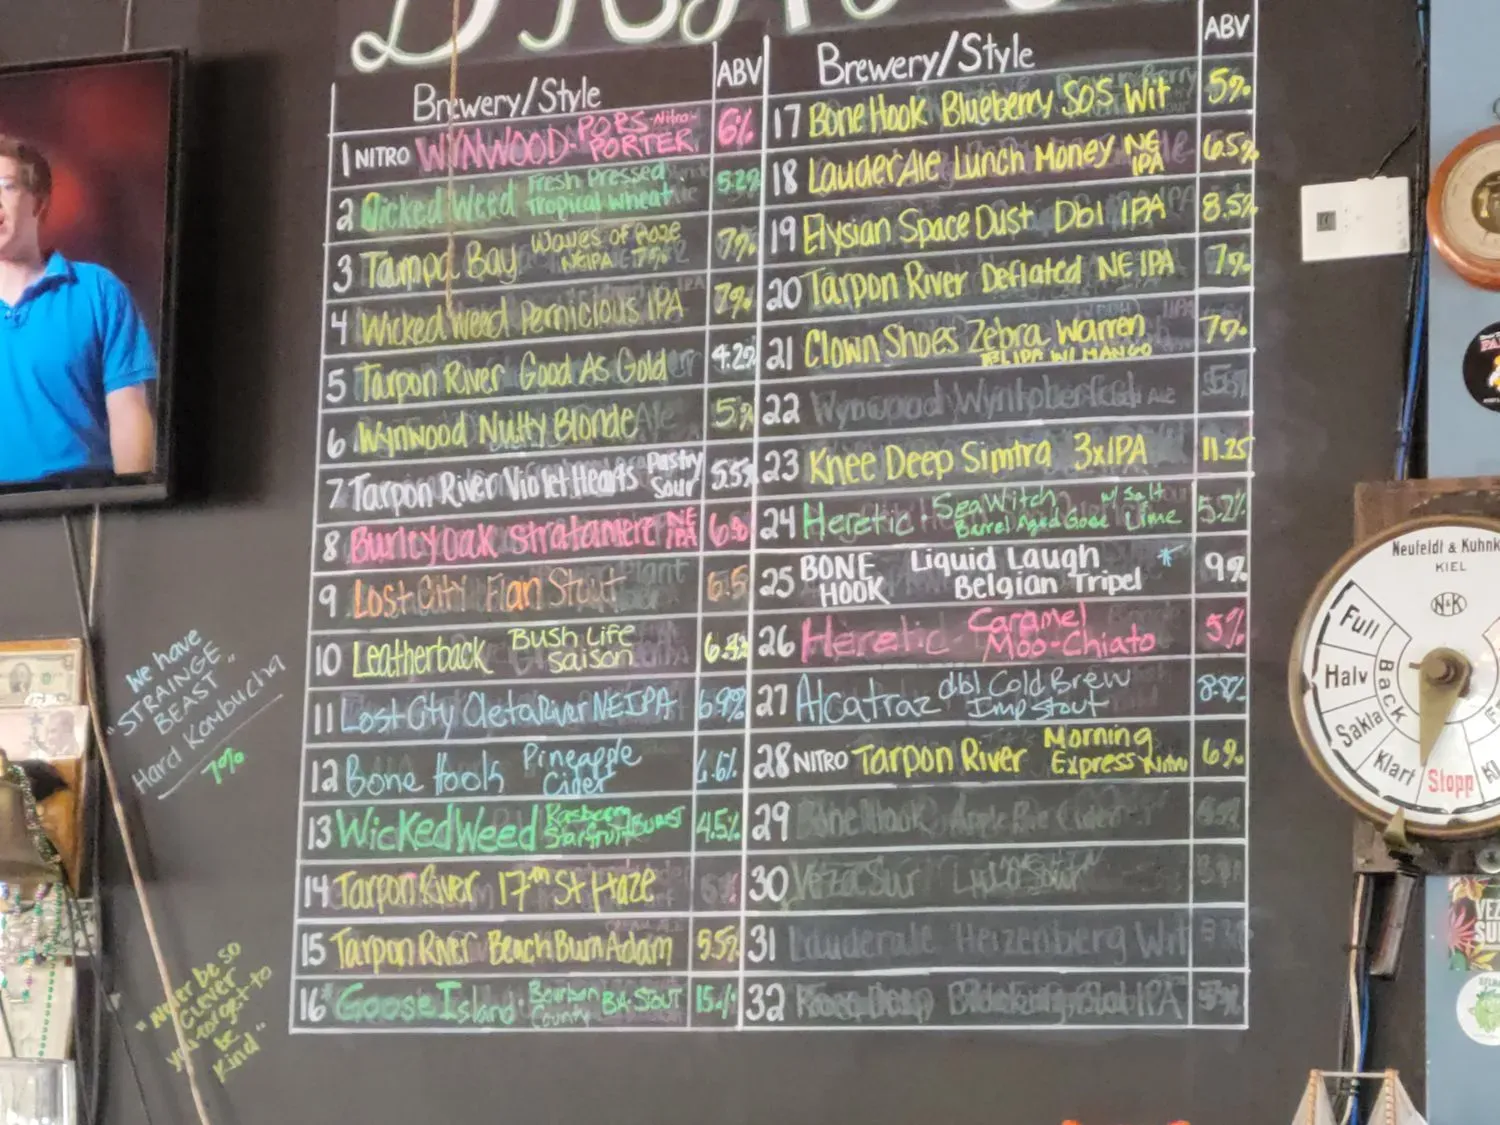 Brewery/Style ABV
1 NITRO WYNWOOD-POPS-Nitro-PORTER 6%
2 Wicked Weed Fresh Pressed Tropical Wheat 5.2%
3 Tampa Bay Waves of Haze NEIPA 7% 7%
4 Wicked Weed Pernicious IPA 7%
5 Tarpon River Good As Gold 4.2%
6 Wynwood Nutty Blonde 5%
7 Tarpon River Violet Hearts Pastry Sour 5.5%
8 Burley Oak Stratamere NE IPA 6%
9 Lost City Flan Stout 6.5
10 Leatherback Bush Life Saison
11 Lost City Oleta River NEIPA 6.9%
12 Bone Hook Pineapple Cider 6.6%
13 Wicked Weed Starfruit BURST 4.5%
14 Tarpon River 17th St Haze
15 Tarpon River Beach Bum Adam 5.5%
16 Goose Island - Bourbon County BA-STOUT 15%
Brewery/Style ABV
17 Bone Hook Blueberry SOS Wit 5%
18 LauderAle Lunch Money NE IPA 6.5%
19 Elysian Space Dust Dbl IPA 8.5%
20 Tarpon River Deflated NE IPA 7%
21 Clown Shoes Zebra Warren BL IPA W/ MANGO 7%
22 Wynwood
23 Knee Deep Simtra 3xIPA 11.25
24 Heretic - Sea Witch w/ Salt Barrel Aged Gose Lime 5.2%
25 BONE HOOK Liquid Laugh Belgian Tripel * 9%
26 Heretic - Caramel Moo-Chiato 5%
27 Alcatraz dbl Cold Brew Imp Stout 8.8%
28 NITRO Tarpon River Morning Express Nitro 6%
29 Bone Hook Apple Pie Cider
30 Veza Sur LULO Sour
31 Lauderale Heizenberg Wit
32
We have
"STRAINGE
BEAST"
Hard Kombucha
7%
"Never be so
CLEVER
you forget to
be
Kind"
Neufeldt & Kuhnk
KIEL
N&K
Full
Halv
Back
Sakla
Klart
Stopp